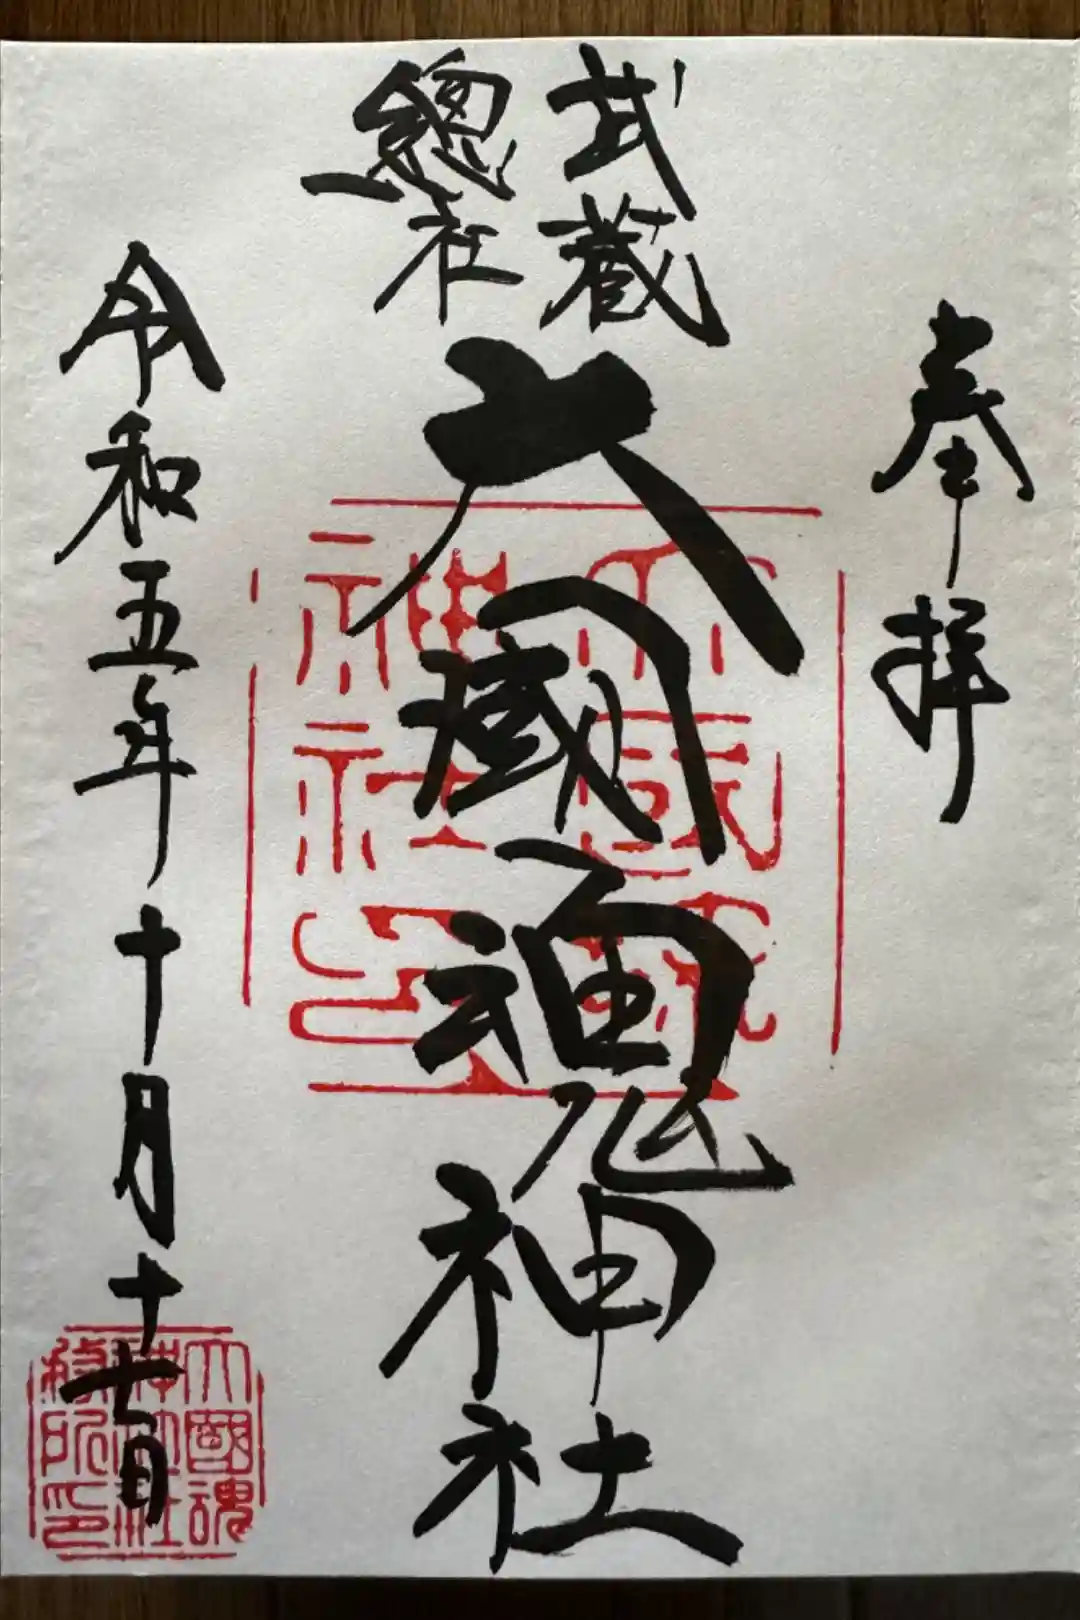 奉拝
武蔵
總社
大國魂神社
令和五年十月十七日
大國魂
神社
務所印